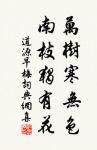 萬樹寒無色
南枝獨有花
道源早梅詞典網集